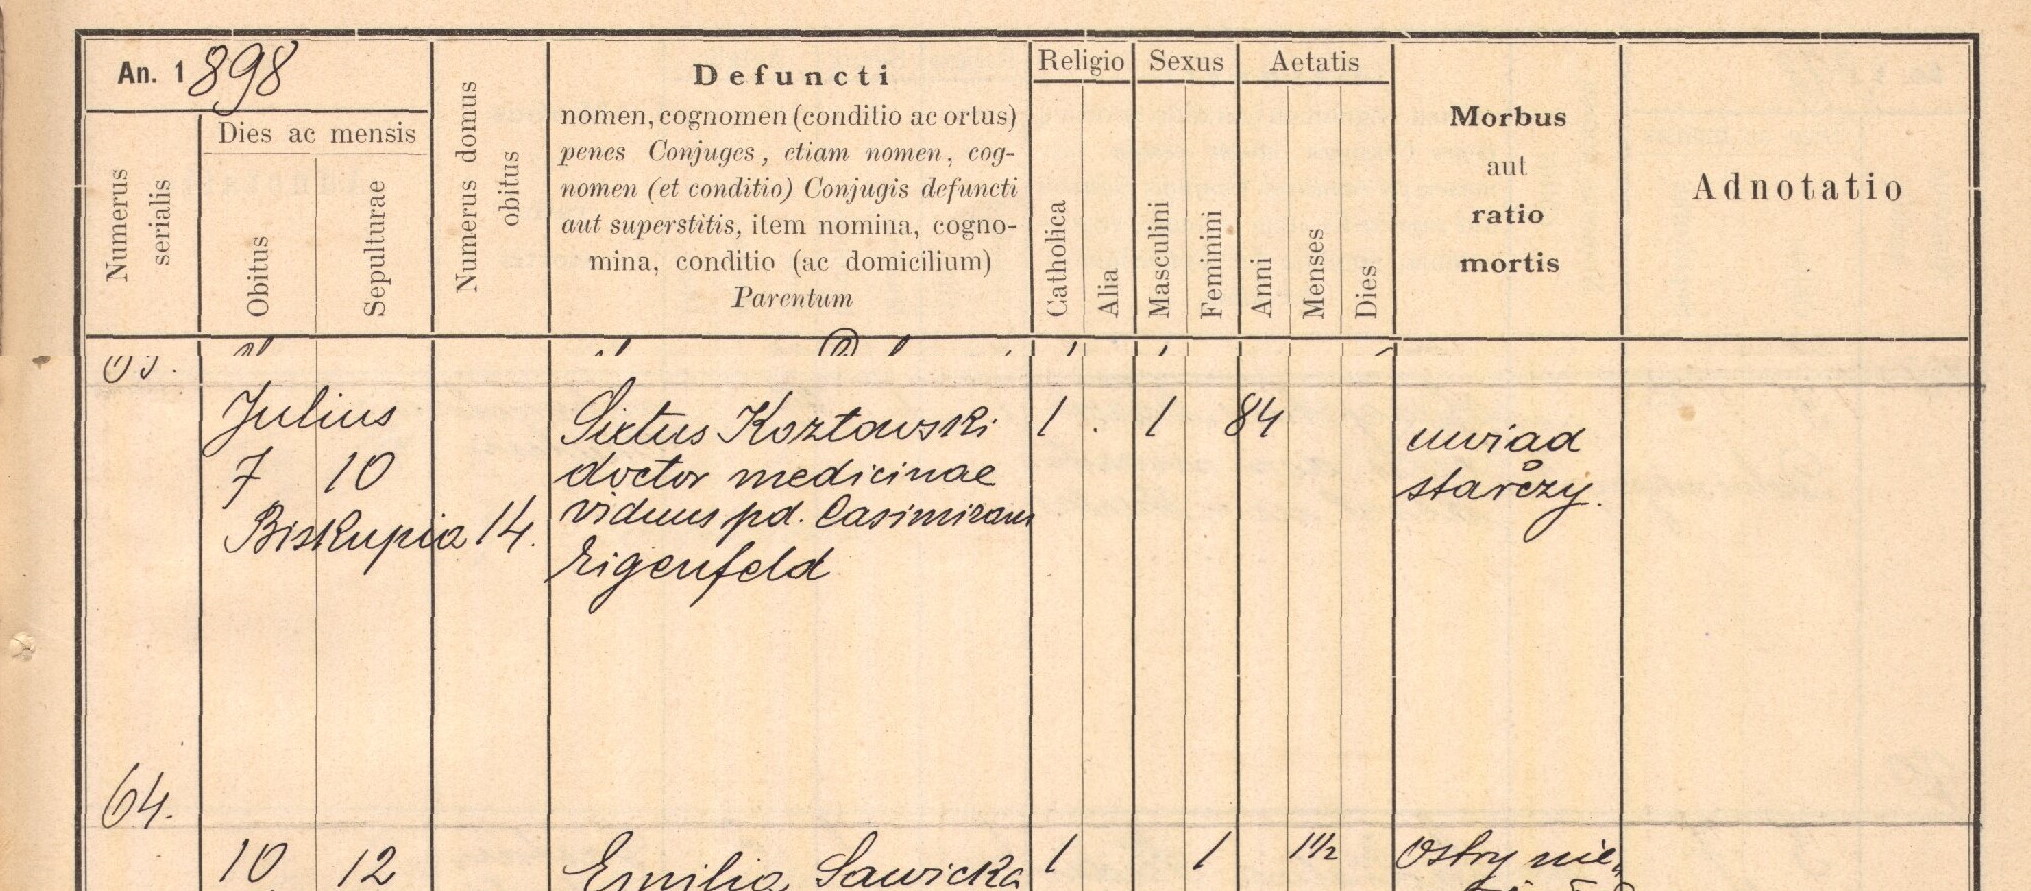 An. 1898
Numerus serialis
Dies ac mensis
Obitus
Sepulturae
Numerus domus obitus
Defuncti
nomen, cognomen (conditio ac ortus)
penes Conjuges, etiam nomen, cog-
nomen (et conditio) Conjugis defuncti
aut superstitis, item nomina, cogno-
mina, conditio (ac domicilium)
Parentum
Religio
Catholica
Alia
Sexus
Masculini
Feminini
Aetatis
Anni
Menses
Dies
Morbus
aut
ratio
mortis
Adnotatio
Julius
7 10
Biskupia 14.
Sixtus Kozłowski
doctor medicinae
viduus pd. Casimiram
Eigenfeld
1 . 1 84
uwiad
starczy.
64.
10 12
Emilia Sawicka
1 1 1½
Ostry nie